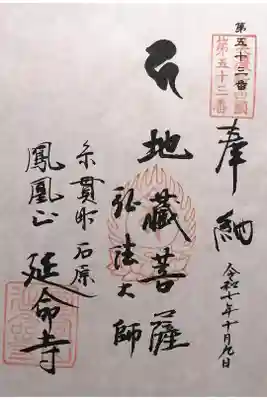 第五十三番
第五十三番
奉納
令和七年十月九日
地蔵菩薩
弘法大師
糸貫町 石原
鳳凰山
延命寺